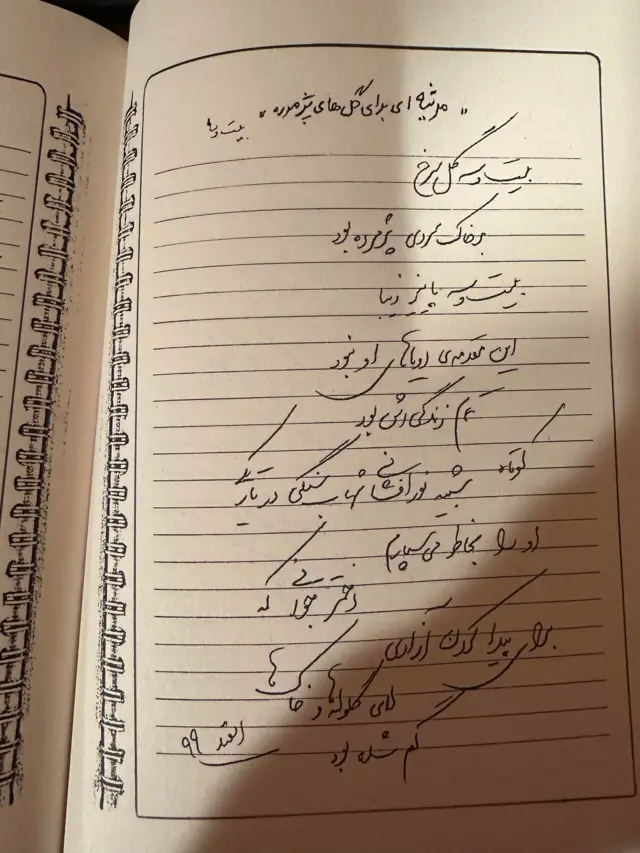 "مرثیه ای برای گل های پژمرده"
بیست و سه گل سرخ
بر خاک سردی پژمرده بود
بیست و سه پاییز زیبا
این مقدمه‌ی رویاهای او نبود
تمام زندگی اش بود
کوتاه
شبیه نورافشانی شهاب سنگی در تاریکی
او را بخاطر می سپاریم
دختر جوانی که
برای پیدا کردن آزادی
لای گلوله ها و خاک ها
گم شده بود
اسفند ۹۹